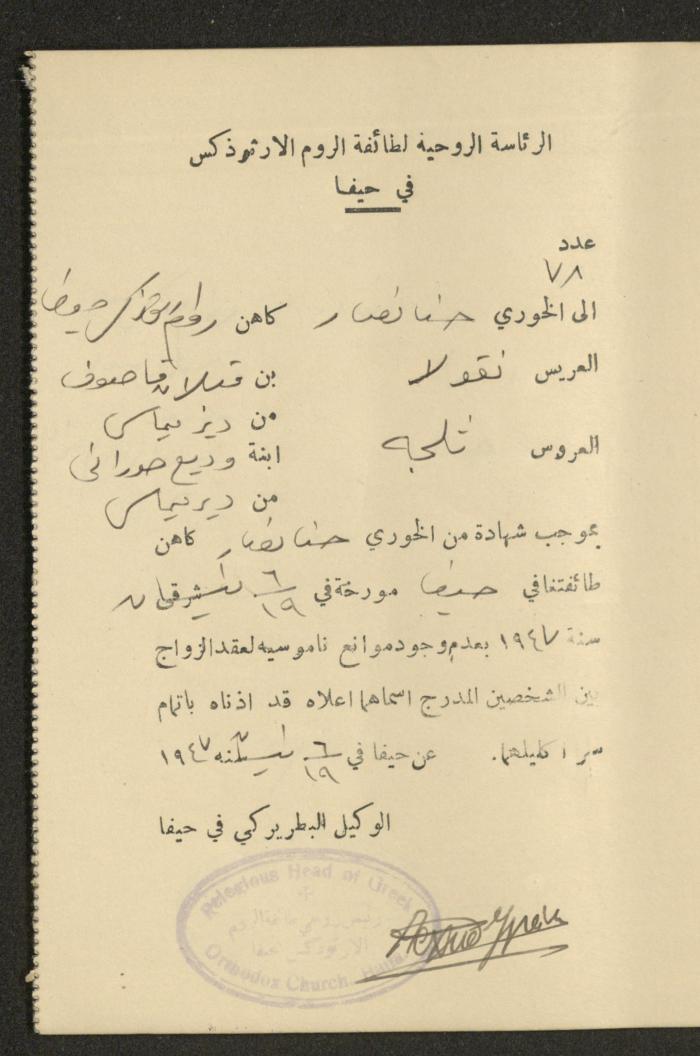 الرئاسة الروحية لطائفة الروم الارثوذكس
في حيفا
عدد
٧٨
الى الخوري حنا نصار كاهن روم ارثوذكس حيفا
العريس نقولا بن قاصوف
من
العروس ثلجه ابنة وديع حوراني
من
بموجب شهادة من الخوري حنا نصار كاهن
طائفتنا في حيفا مورخة في ٦/١٩
سنة ١٩٤٧ بعدم وجود موانع ناموسيه لعقد الزواج
بين الشخصين المدرج اسماهما اعلاه قد اذناه باتمام
سر اكليلهما. عن حيفا في ٦/١٩ سنه ١٩٤٧
الوكيل البطريركي في حيفا
Relegious Head of Greek
رئيس روحي طائفة الروم
الارثوذكس حيفا
Orthodox Church, Haifa